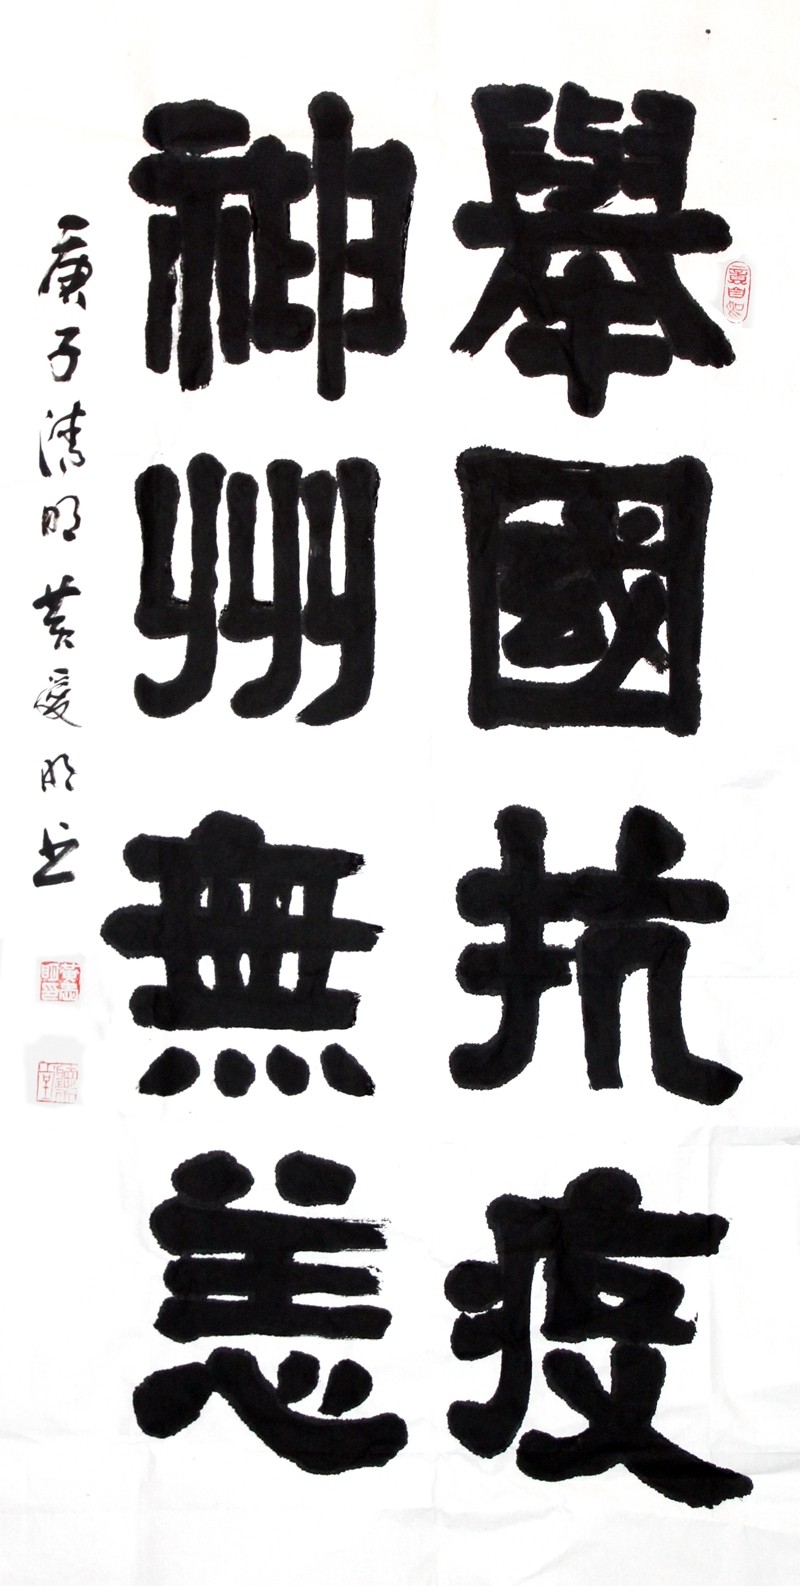 舉國抗疫
神州無恙
庚子清明 黄爱明书